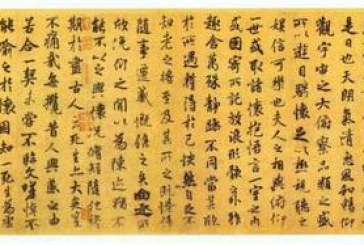 是日也天朗氣清惠風和暢仰
觀宇宙之大俯察品類之盛
所以遊目騁懷足以極視聽之
娛信可樂也夫人之相與俯仰
一世或取諸懷抱悟言一室之內
或因寄所託放浪形骸之外雖
趣舍萬殊靜躁不同當其欣
於所遇暫得於己怏然自足不
知老之將至及其所之既惓情
隨事遷感慨係之矣向之所
欣俛仰之閒以為陳迹猶不
能不以之興懷況脩短隨化終
期於盡古人云死生亦大矣豈
不痛哉每攬昔人興感之由
若合一契未嘗不臨文嗟悼不
能喻之於懷固知一死生為虛